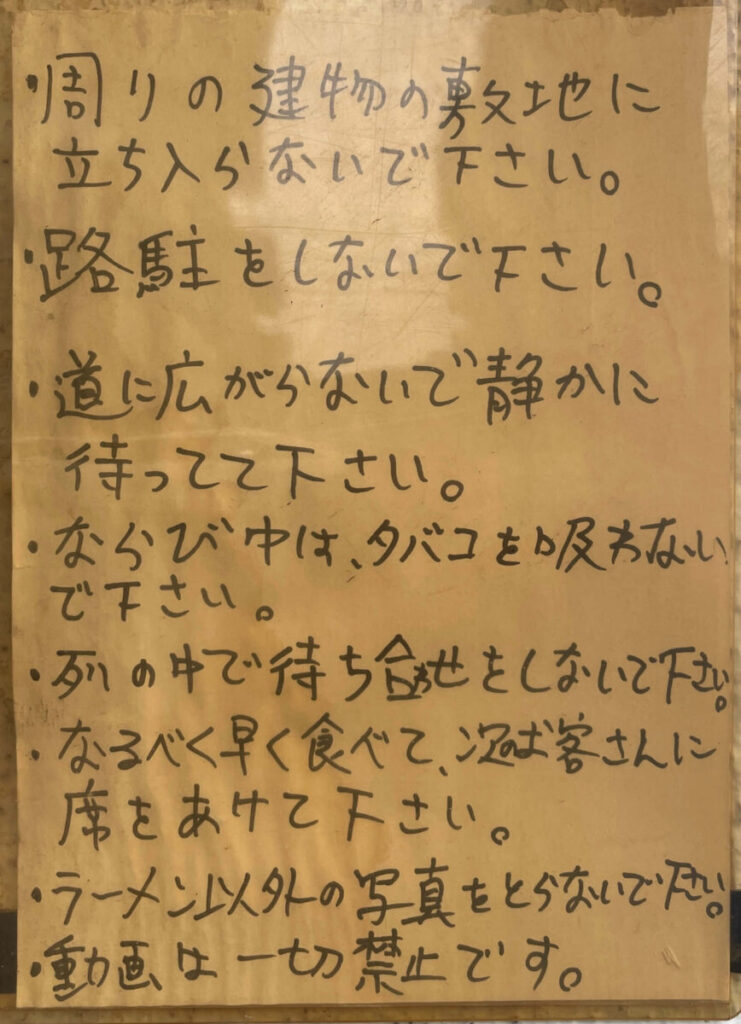 ・周りの建物の敷地に
立ち入らないで下さい。
・路駐をしないで下さい。
・道に広がらないで静かに
待ってて下さい。
・ならび中は、タバコを吸わない
で下さい。
・列の中で待ち合わせをしないで下さい。
・なるべく早く食べて、次のお客さんに
席をあけて下さい。
・ラーメン以外の写真をとらないで下さい。
・動画は一切禁止です。